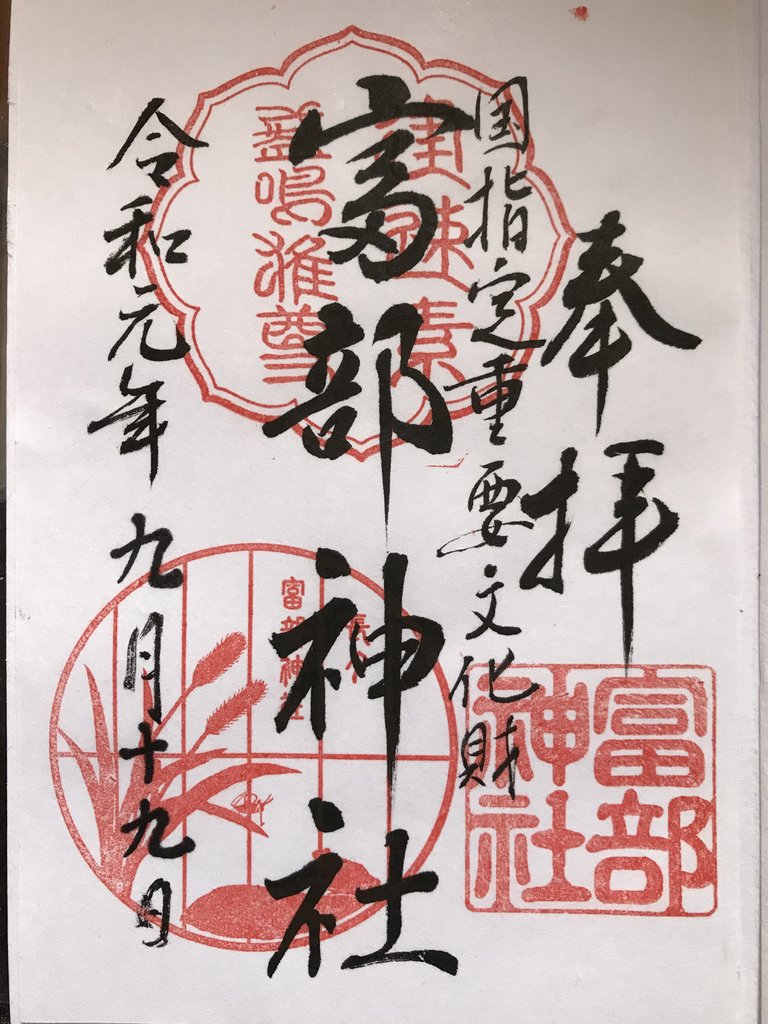 奉拝
国指定重要文化財
富部神社
令和元年 九月十九日
建速素
盞嗚雄尊
富部
神社
富部神社